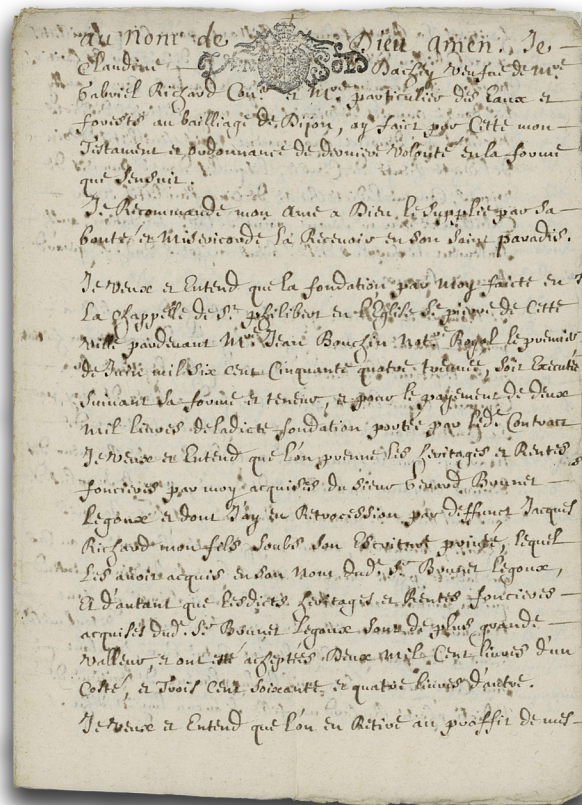 au nom de Dieu amen. Je
Claudine Bazey veufue de Mre
Gabriël Richard Conr et Mre particulier des Eaux et
forests au bailliage de Dijon, ay faict par Cette mon
Testament et ordonnance de derniere Volonté en la forme
que s'ensuit.
Je Recommande mon ame a Dieu, le supplie par sa
bonté et Misericorde la Recevoir en son sainct paradis.
Je veux et Entend que la fondation par moy faicte en
La Chappelle de St philibert en l'Eglise St pierre de Cette
ville pardevant Mre Jean Bouchin Notre Royal le premier
de mil six cent Cinquante quatre soit Executée
suiuant sa forme et teneur, et pour le payement de deux
mil liures deladicte fondation portée par ledt Contract
Je veux et Entend que l'on prenne les heritages et Rentes
foncieres par moy acquises du sieur Gerard Bonnet
Legoux et dont J'ay eu Retrocession par deffunct Jacques
Richard mon fils soubs son Escriture privée, lequel
Les avoir acquis en son nom dudt Sr Bonnet Legoux,
Et d'autant que lesdicts heritages et Rentes foncieres
acquises dudt Sr Bonnet Legoux sont de plus grande
valleur, et ont esté acheptées Deux Mil Cent liures d'un
Costé, et Trois Cent soixante et quatre liures d'autre.
Je veux et Entend que l'on en Retire au proffit de mes